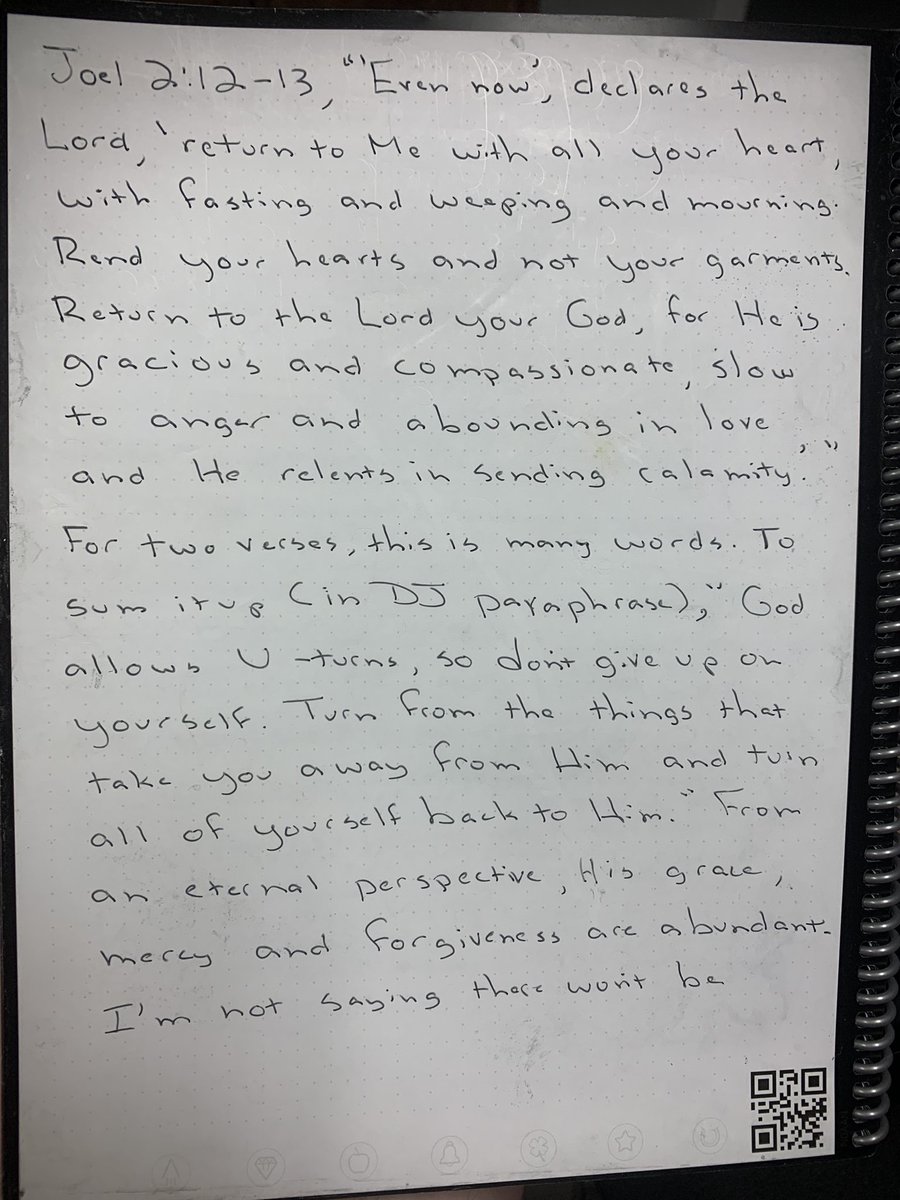 Joel 2:12-13, "'Even now', declares the
Lord, 'return to Me with all your heart,
with fasting and weeping and mourning.
Rend your hearts and not your garments.
Return to the Lord your God, for He is
gracious and compassionate, slow
to anger and abounding in love
and He relents in sending calamity.'"
For two verses, this is many words. To
sum it up (in DJ paraphrase), "God
allows U-turns, so don't give up on
yourself. Turn from the things that
take you away from Him and turn
all of yourself back to Him." From
an eternal perspective, His grace,
mercy and forgiveness are abundant.
I'm not saying there won't be